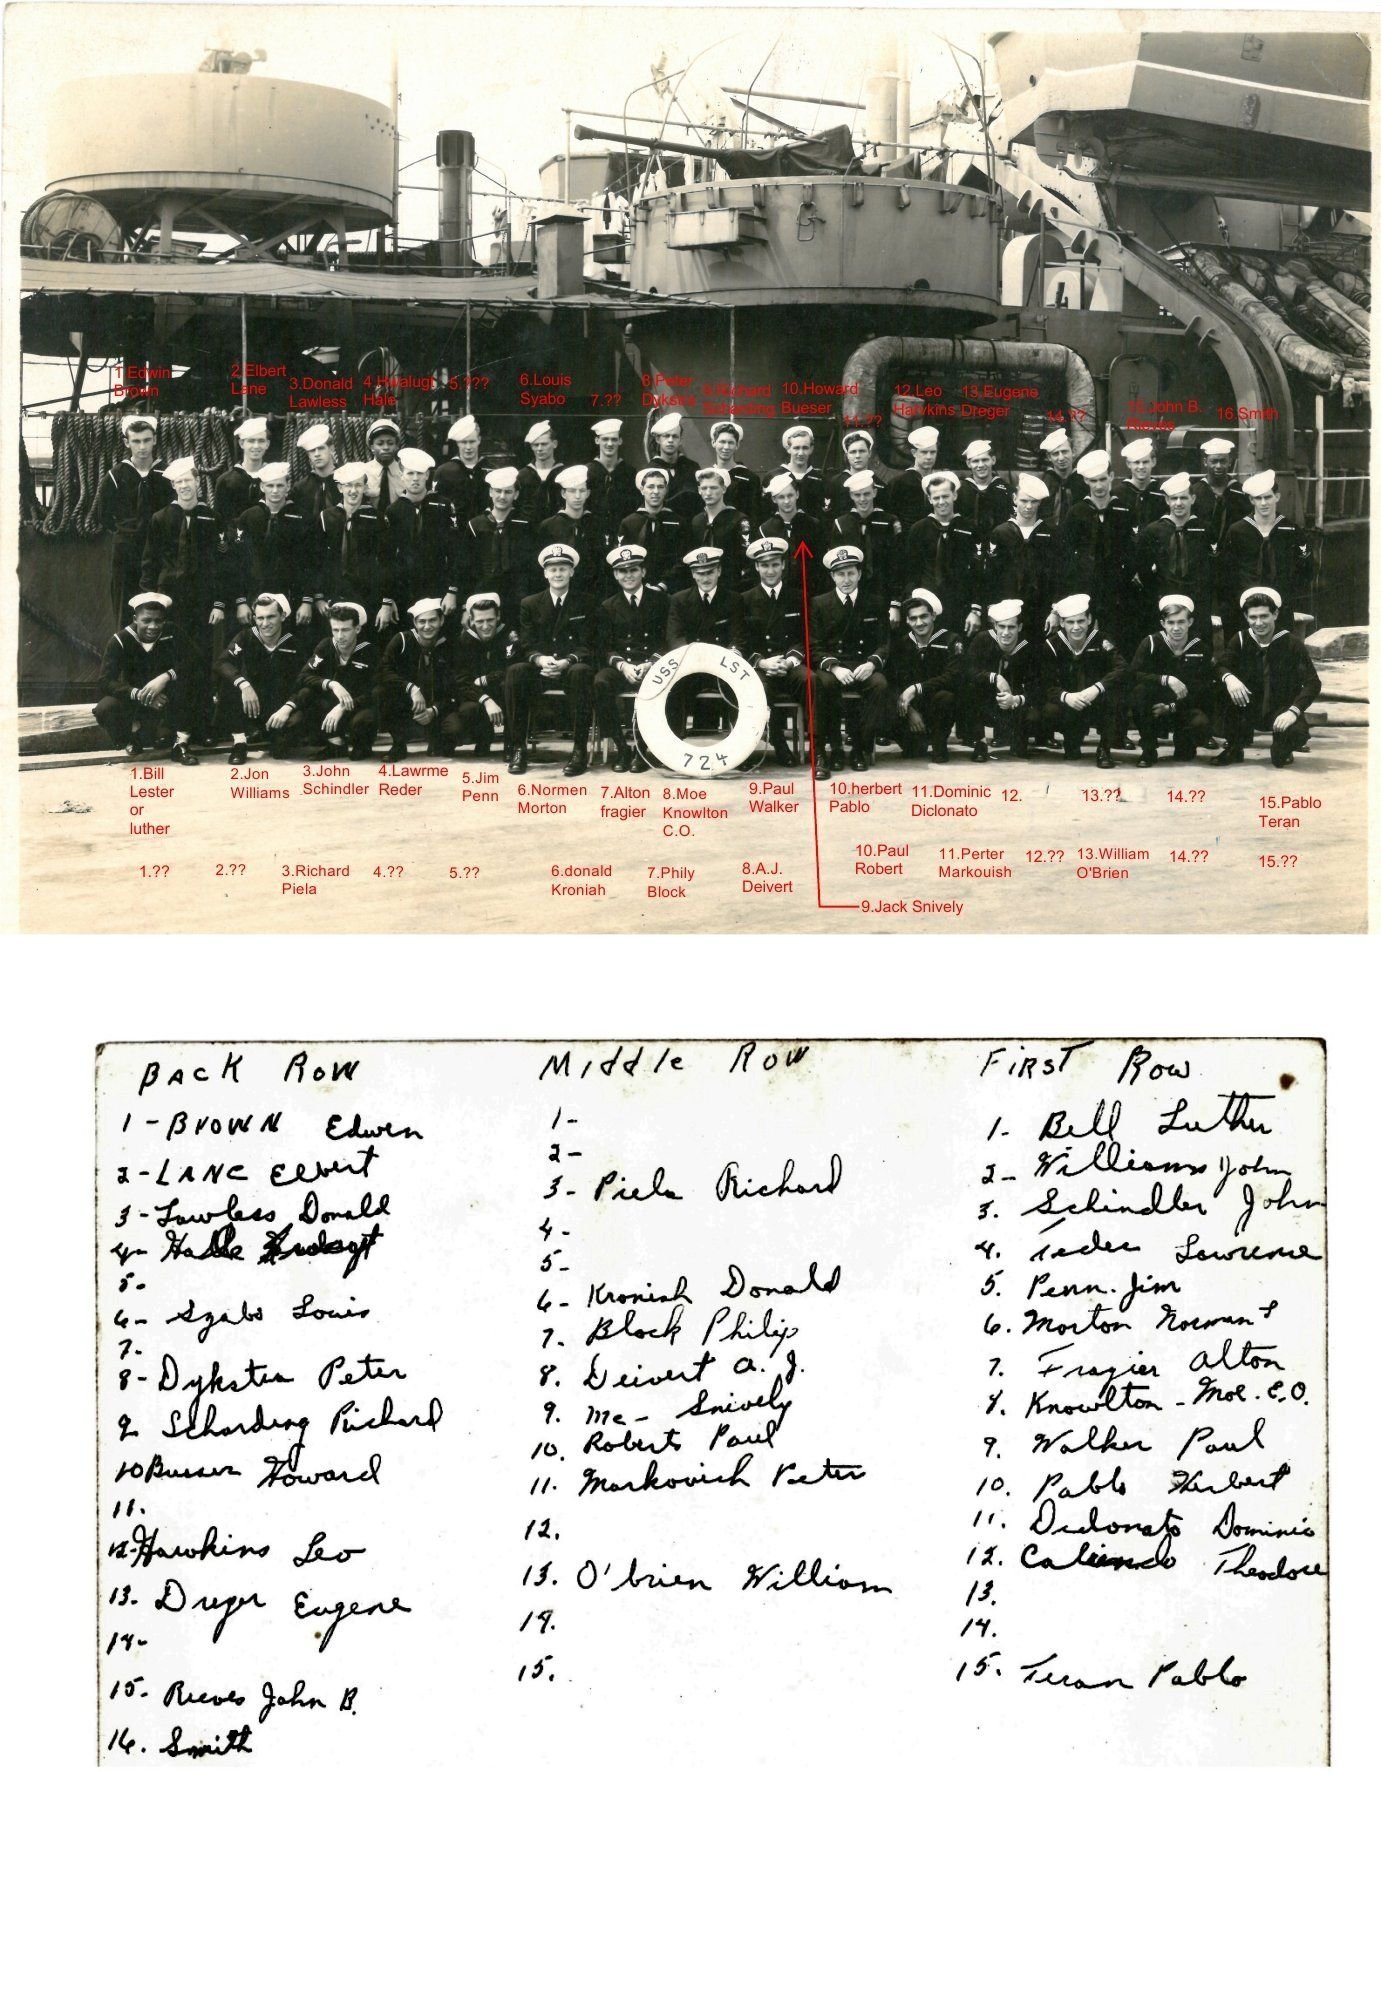 1.Edwin Brown
2.Elbert Lane
3.Donald Lawless
4.Hwalugt Hale
5.???
6.Louis Syabo
7.??
8.Peter Dykstra
9.Richard Scharding
10.Howard Bueser
11.??
12.Leo Hawkins
13.Eugene Dreger
14.??
15.John B.
16.Smith
USS LST
724
1.Bill Lester or luther
2.Jon Williams
3.John Schindler
4.Lawrme Reder
5.Jim Penn
6.Normen Morton
7.Alton fragier
8.Moe Knowlton C.O.
9.Paul Walker
10.herbert Pablo
11.Dominic Diclonato
12.
13.??
14.??
15.Pablo Teran
1.??
2.??
3.Richard Piela
4.??
5.??
6.donald Kroniah
7.Phily Block
8.A.J. Deivert
9.Jack Snively
10.Paul Robert
11.Perter Markouish
12.??
13.William O'Brien
14.??
15.??
BACK ROW
1- BROWN Edwin
2- LANE Elbert
3- Lawless Donald
4- Halle
5-
6- Szabo Louis
7-
8- Dykstra Peter
9. Scharding Richard
10 Bueser Howard
11.
12- Hawkins Leo
13. Dreger Eugene
14-
15- Reeves John B.
16. Smith
Middle Row
1-
2-
3- Piela Richard
4-
5-
6- Kronish Donald
7. Block Philip
8. Deivert A. J.
9. Me- Snively
10. Roberts Paul
11. Markovich Peter
12.
13. O'brien William
14.
15.
First Row
1- Bell Luther
2- Williams John
3. Schindler John
4. Lawrence
5. Penn. Jim
6. Morton Norman
7. Frazier Alton
8. Knowlton - Moe. C.O.
9. Walker Paul
10. Pablo Herbert
11. Didonato Dominic
12. Caliendo Theodore
13.
14.
15. Teran Pablo